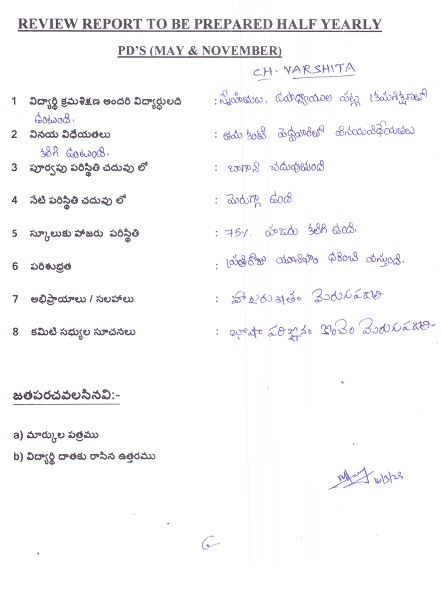 REVIEW REPORT TO BE PREPARED HALF YEARLY
PD'S (MAY & NOVEMBER)
CH. VARSHITA
1 విద్యార్థి క్రమశిక్షణ అందరి విద్యార్థులది : స్నేహితులు, ఉపాధ్యాయుల పట్ల క్రమశిక్షణతో
ఉంటుంది.
2 వినయ విధేయతలు : తమ కంటే పెద్దవారితో వినయవిధేయతలు
కలిగి ఉంటుంది.
3 పూర్వపు పరిస్థితి చదువు లో : బాగానే చదువుతుంది
4 నేటి పరిస్థితి చదువు లో : మెరుగ్గా ఉంది
5 స్కూలుకు హాజరు పరిస్థితి : 75% హాజరు కలిగి ఉంది.
6 పరిశుభ్రత : ప్రతిరోజు యూనిఫాం ధరించి వస్తుంది.
7 అభిప్రాయాలు / సలహాలు : హాజరుశాతం మెరుగుపడాలి
8 కమిటి సభ్యుల సూచనలు : భాషా పరిజ్ఞానం కొంచెం మెరుగుపడాలి-
జతపరచవలసినవి:-
a) మార్కుల పత్రము
b) విద్యార్థి దాతకు రాసిన ఉత్తరము